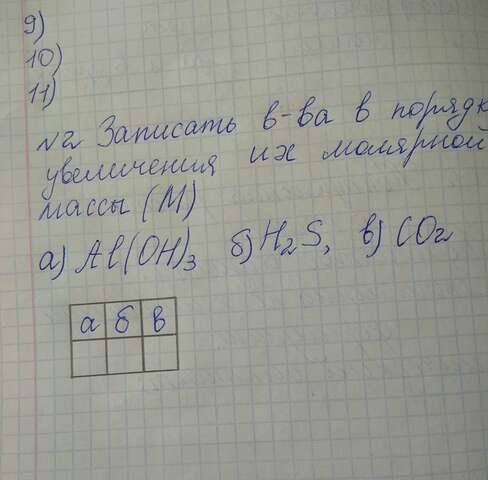 9)
10)
11)
№2 Записать в-ва в порядк
увеличения их молярной
массы (М)
а) Al(OH)₃ б) H₂S, в) CO₂
а б в